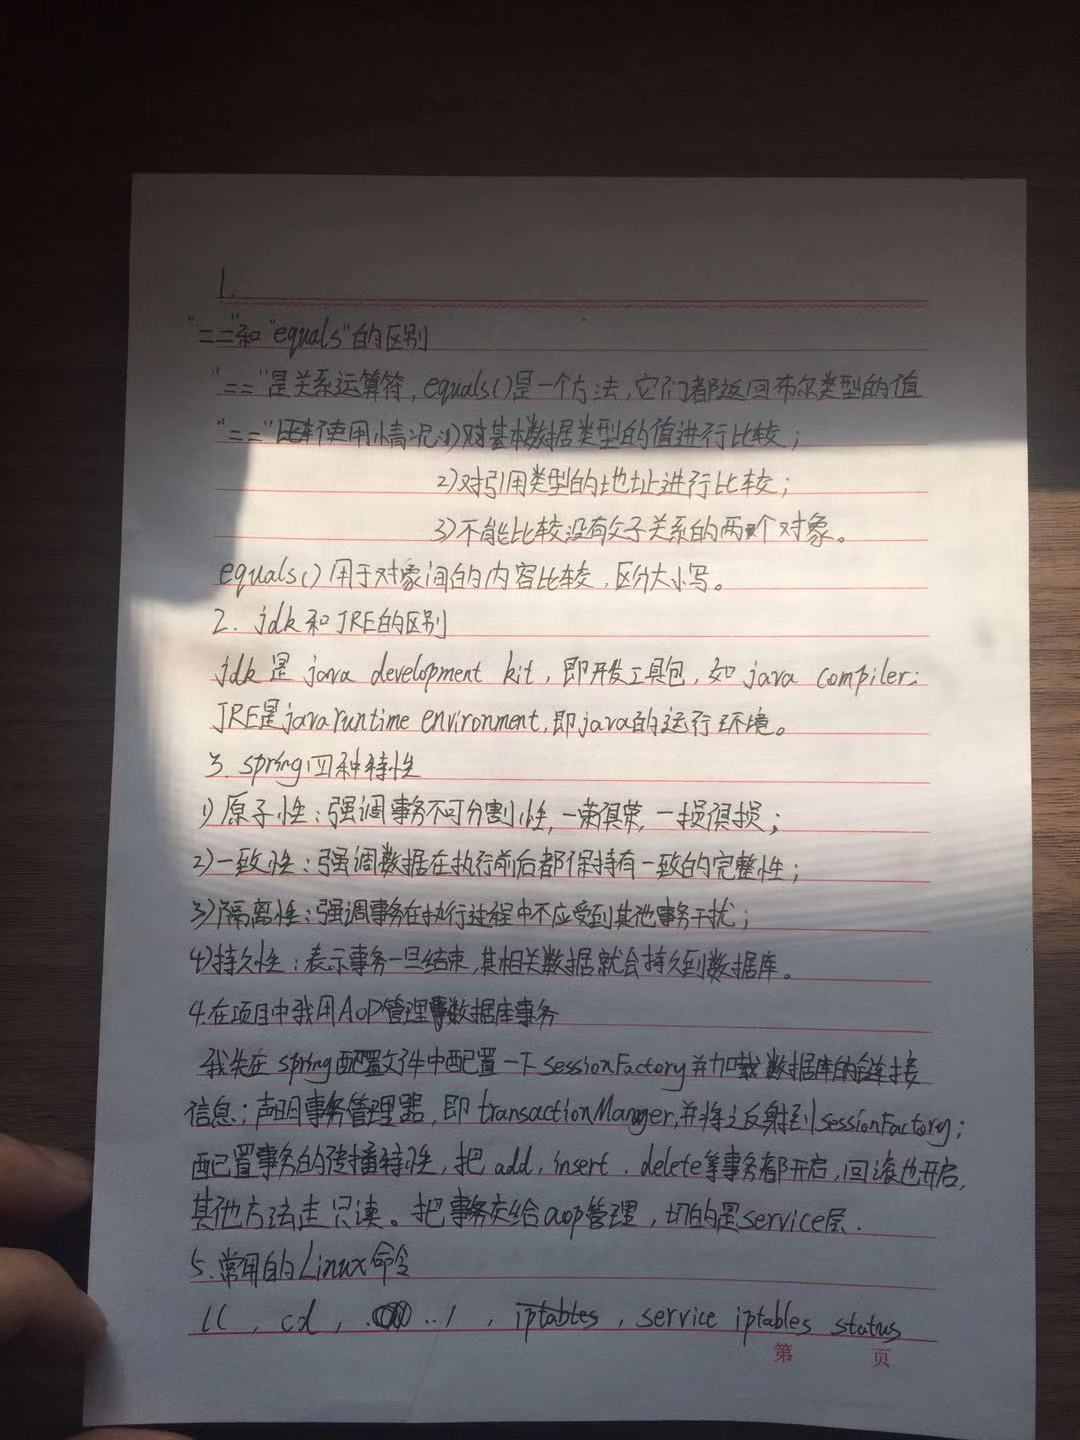 1.
"=="和"equals"的区别
"=="是关系运算符，equals()是一个方法，它们都返回布尔类型的值
"=="使用情况:1)对基本数据类型的值进行比较；
2)对引用类型的地址进行比较；
3)不能比较没有父子关系的两个对象。
equals()用于对象间的内容比较，区分大小写。
2. jdk和JRE的区别
jdk是 java development kit，即开发工具包，如 java compiler;
JRE是java runtime environment，即java的运行环境。
3. spring四种特性
1)原子性：强调事务不可分割性，一荣俱荣，一损俱损；
2)一致性：强调数据在执行前后都保持有一致的完整性；
3)隔离性：强调事务在执行过程中不应受到其他事务干扰；
4)持久性：表示事务一旦结束，其相关数据就会持久到数据库。
4.在项目中我用AOP管理数据库事务
我先在spring配置文件中配置一下sessionFactory并加载数据库的连接
信息；声明事务管理器，即transactionManager，并将之反射到sessionFactory；
配置事务的传播特性，把add, insert, delete等事务都开启，回滚也开启，
其他方法走只读。把事务交给aop管理，切的是service层.
5.常用的Linux命令
ll , cd , ../ , iptables , service iptables status
第 页